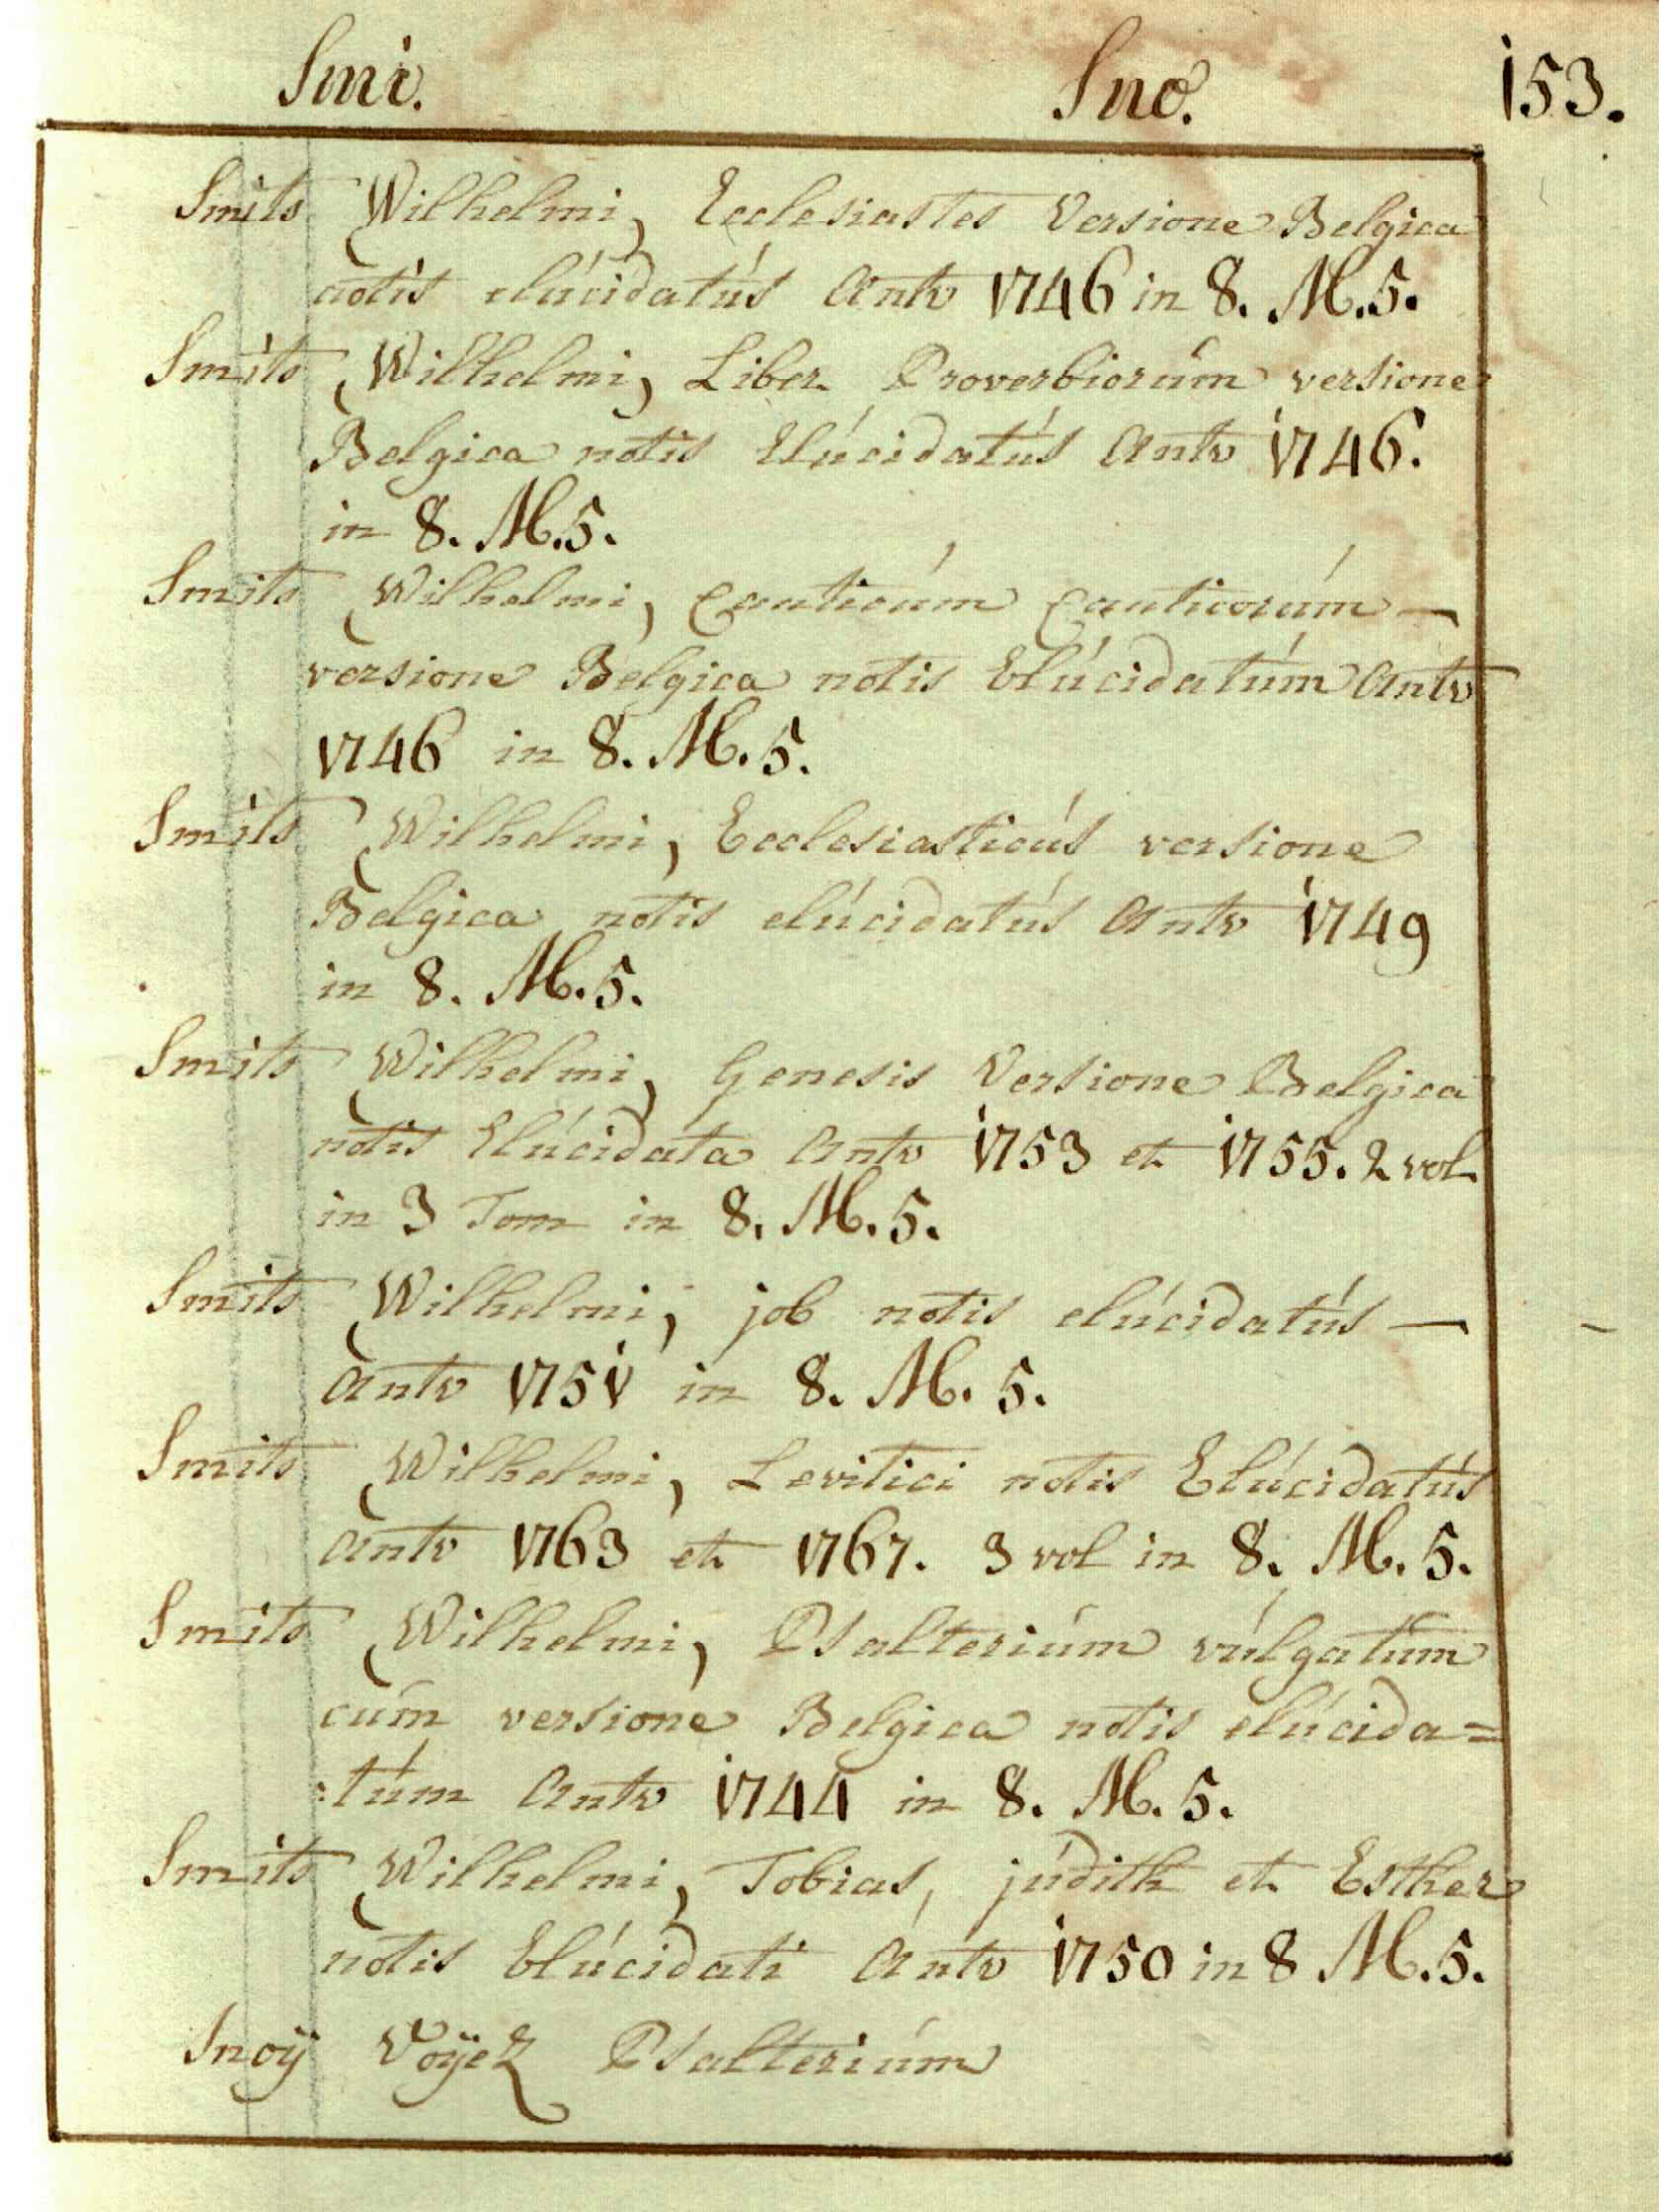 Smi. Sno. 153.
Smits Wilhelmi, Ecclesiastes Versione Belgica
notis elúcidatús Antv 1746 in 8. M.5.
Smits Wilhelmi, Liber Proverbiorúm versione
Belgica notis Elúcidatús Antv 1746.
in 8. M.5.
Smits Wilhelmi, Canticúm Canticorúm —
versione Belgica notis Elúcidatúm Antv
1746 in 8. M. 5.
Smits Wilhelmi, Ecclesiasticús versione
Belgica notis elúcidatús Antv 1749
in 8. M. 5.
Smits Wilhelmi, Genesis Versione Belgica
notis Elúcidata Antv 1753 et 1755. 2 vol
in 3 Tom in 8. M. 5.
Smits Wilhelmi, job notis elúcidatús —
Antv 1751 in 8. M. 5.
Smits Wilhelmi, Levitici notis Elúcidatús
Antv 1763 et 1767. 3 vol in 8. M. 5.
Smits Wilhelmi, Psalteriúm vúlgatúm
cúm versione Belgica notis elúcida=
:túm Antv 1744 in 8. M. 5.
Smits Wilhelmi, Tobias, júdith et Esther
notis Elúcidati Antv 1750 in 8 M. 5.
Snoÿ Voÿez Psalteriúm